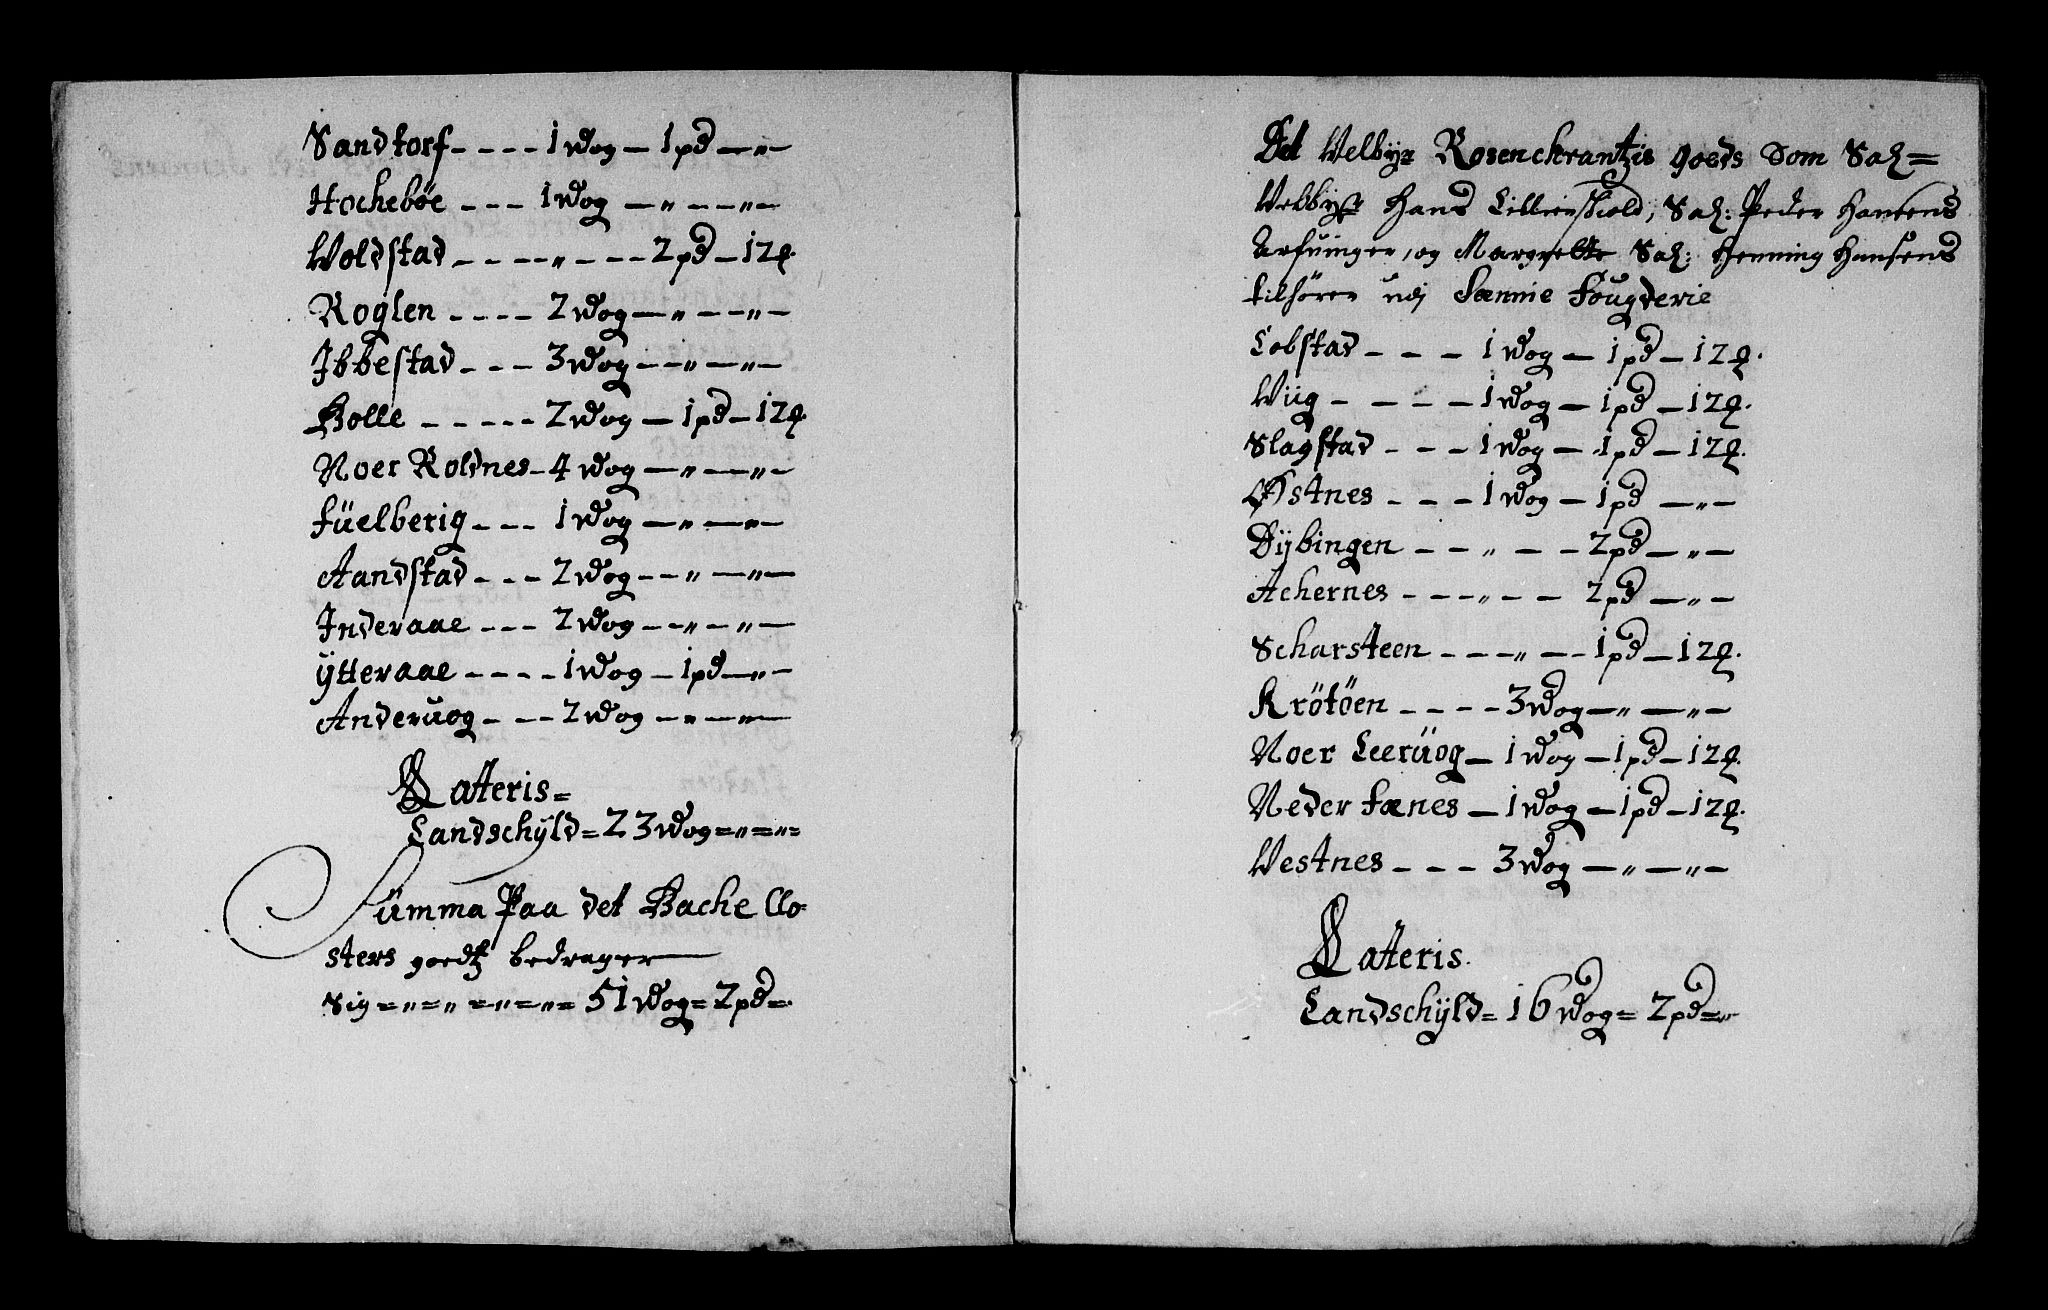 Sandtorf - - - - 1 wog - 1 pd - " -
Hochebøe - - - 1 wog - " - - " -
Woldstad - - - - " - - - 2 pd - 12 ꝉ.
Roglen - - - - 2 wog - " - - " -
Ibbestad - - - 3 wog - - " - " -
Bolle - - - - - 2 wog - 1 pd - 12 ꝉ.
Noer Roldnes - 4 wog - " - - " -
füelberig - - - 1 wog - " - " -
Aandstad - - - 2 wog - - " - " -
Inderaae - - - 2 wog - - " - " -
ÿtteraae - - - - 1 wog - 1 pd - " -
Anderüog - - - 2 wog - " - " -
Latteris =
Landschÿld = 23 wog = " = " =
Summa Paa det Bache Clo-
sters goedtz bedrager
Sig = " = " = " = " = 51 wog = 2 pd =.
Det Welbÿr Rosenckrantzis goeds Som Sal =
Welbÿr Hans Lillienschiold, Sal: Peder Hansens
Arfvinger, og Margrette Sal: Henning Hansens
tilhører udj Sænnie Fougderie
Lobstad - - - 1 wog - 1 pd - 12 ꝉ.
Wiig - - - - 1 wog - 1 pd - 12 ꝉ.
Slagstad - - - 1 wog - 1 pd - 12 ꝉ.
Østnes - - - 1 wog - 1 pd - " -
Dÿbingen - - " - - 2 pd - " -
Achernes - - - " - - 2 pd - " -
Scharsteen - - - " - - 1 pd - 12 ꝉ.
Krötöen - - - - 3 wog - " - " -
Noer Leerüog - 1 wog - 1 pd - 12 ꝉ.
Neder fænes - 1 wog - 1 pd - 12 ꝉ.
Westnes - - - 3 wog - " - " -
Latteris.
Landschÿld = 16 wog = 2 pd = " -